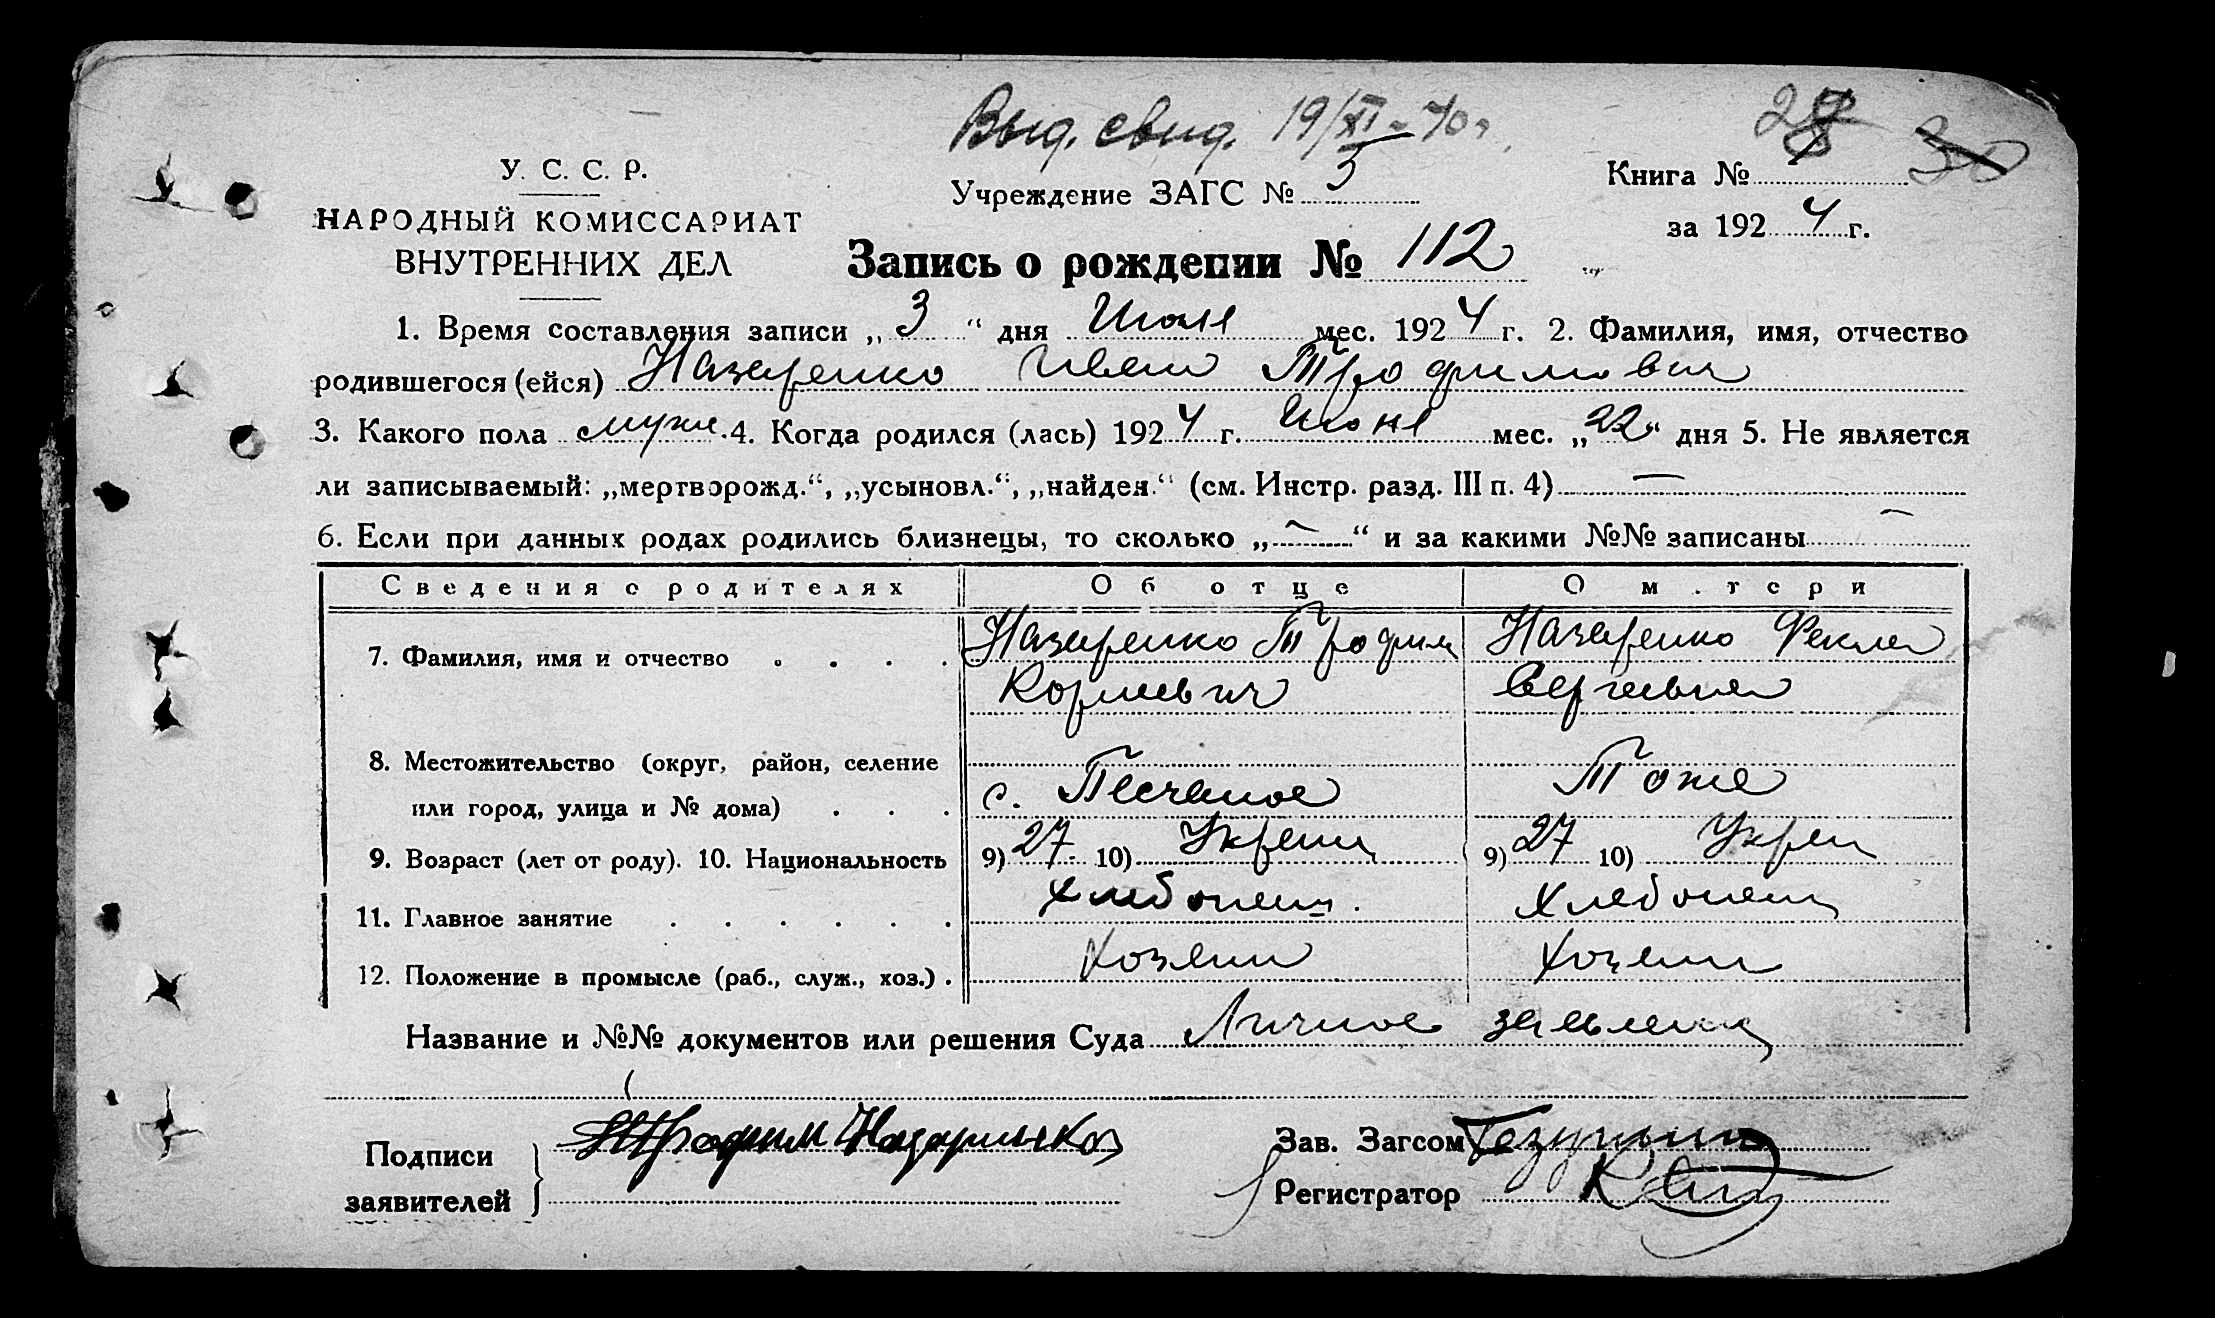 Выд. свид. 19/XI-70г.
28 30
У. С. С. Р.
НАРОДНЫЙ КОМИССАРИАТ
ВНУТРЕННИХ ДЕЛ
Учреждение ЗАГС № 3
Книга №
за 1924 г.
Запись о рождении № 112
1. Время составления записи „3“ дня Июля мес. 1924 г. 2. Фамилия, имя, отчество
родившегося (ейся) Назаренко Иван Трофимович
3. Какого пола муж. 4. Когда родился (лась) 1924 г. Июня мес. „22“ дня 5. Не является
ли записываемый: „мертворожд.“, „усыновл.“, „найден.“ (см. Инстр. разд. III п. 4) —
6. Если при данных родах родились близнецы, то сколько „—“ и за какими №№ записаны —
Сведения о родителях Об отце О м.тери
7. Фамилия, имя и отчество . . . . Назаренко Трофим Назаренко Фекла
Корнеевич Сергеевна
8. Местожительство (округ, район, селение
или город, улица и № дома) . . . с. Песчаное Тоже
9. Возраст (лет от роду). 10. Национальность 9) 27 10) Украин 9) 27 10) Укра
11. Главное занятие . . . . . . Хлебопашец. Хлебопашец
12. Положение в промысле (раб., служ., хоз.) . Хозяин Хозяин
Название и №№ документов или решения Суда Личное заявление
Подписи
заявителей
Трофим Назаринков
Зав. Загсом
Регистратор